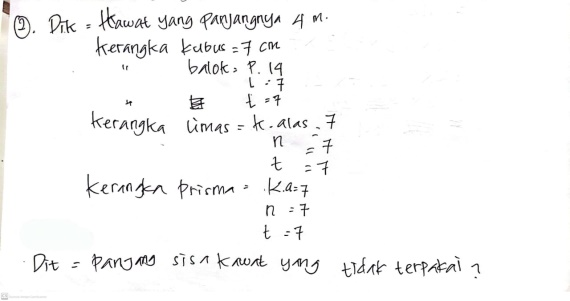 ②. Dik = Kawat yang panjangnya 4 m.
kerangka kubus = 7 cm
" balok = P. 14
l = 7
" t = 7
kerangka limas = k. alas = 7
n = 7
t = 7
kerangka prisma = k.a = 7
n = 7
t = 7
Dit = panjang sisa kawat yang tidak terpakai ?